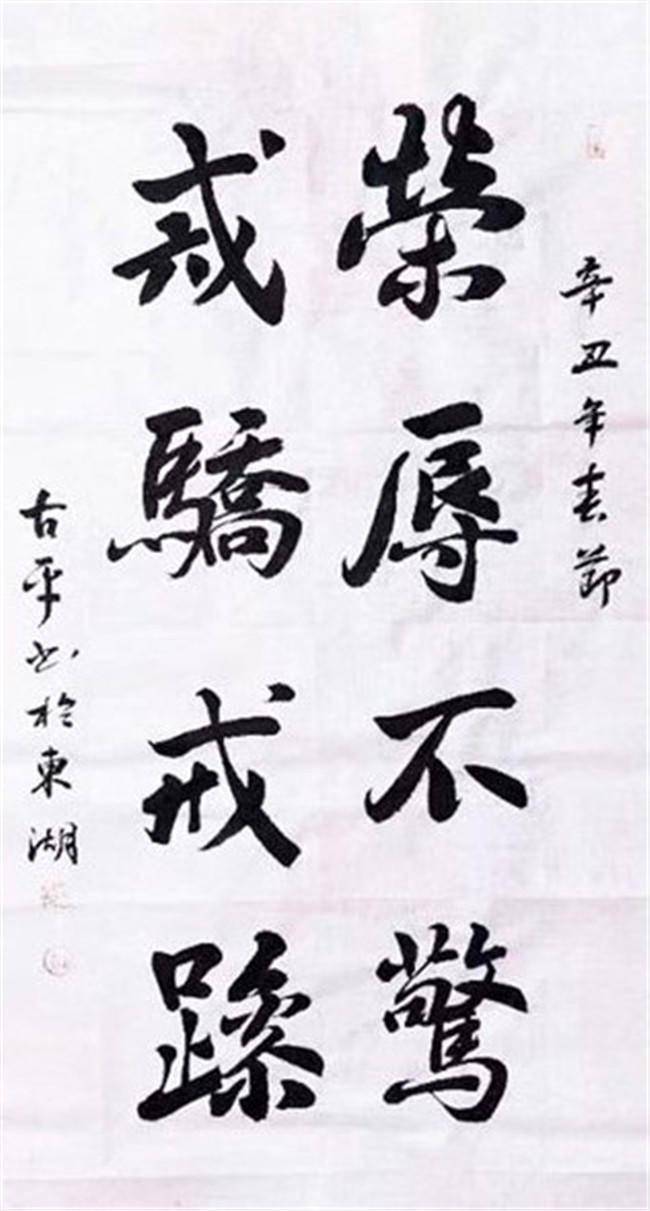 辛丑年春節
榮辱不驚
戒驕戒躁
古平书於東湖